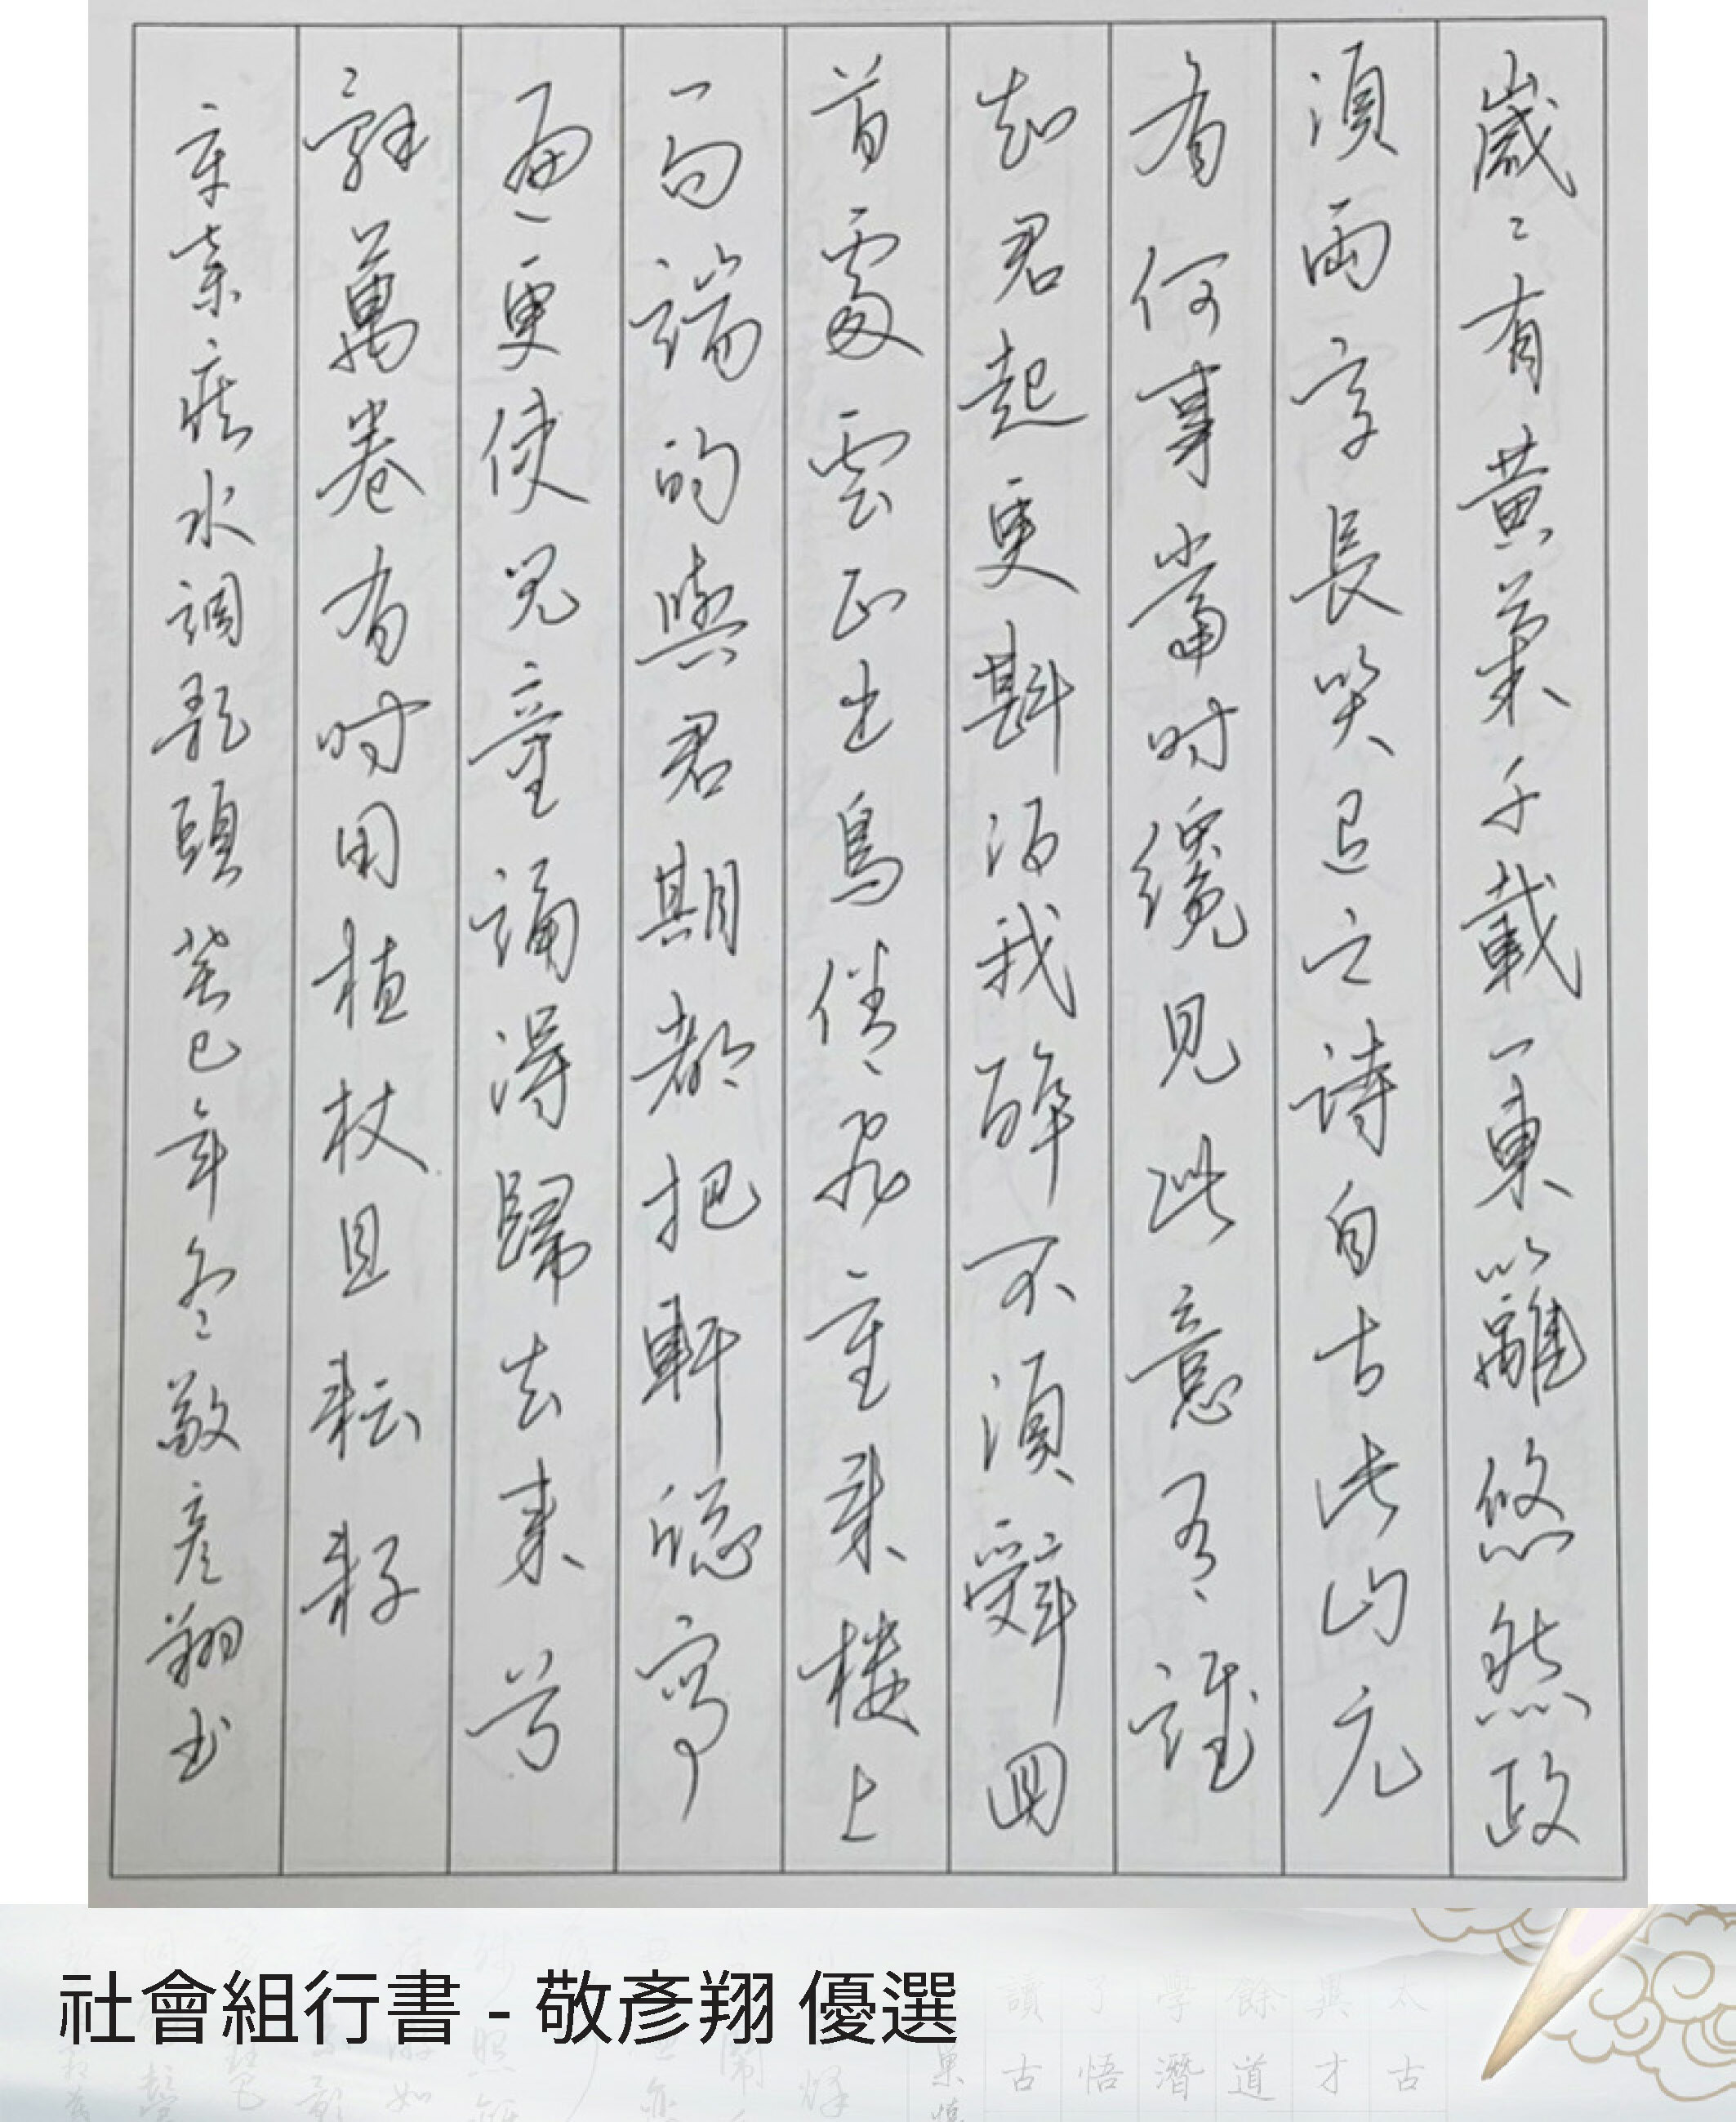 歲々有黃菊千載一東籬悠然政
須兩字長笑退之詩自古此山元
有何事當時纔見此意有誰
知君起更斟酒我醉不須辭回
首處雲正出鳥倦飛重來樓上
一句端的與君期都把軒窗寫
遍更使兒童誦得歸去來兮
辭萬卷有時用植杖且耘耔
辛棄疾水調歌頭癸巳年冬敬彥翔書
社會組行書 - 敬彥翔 優選